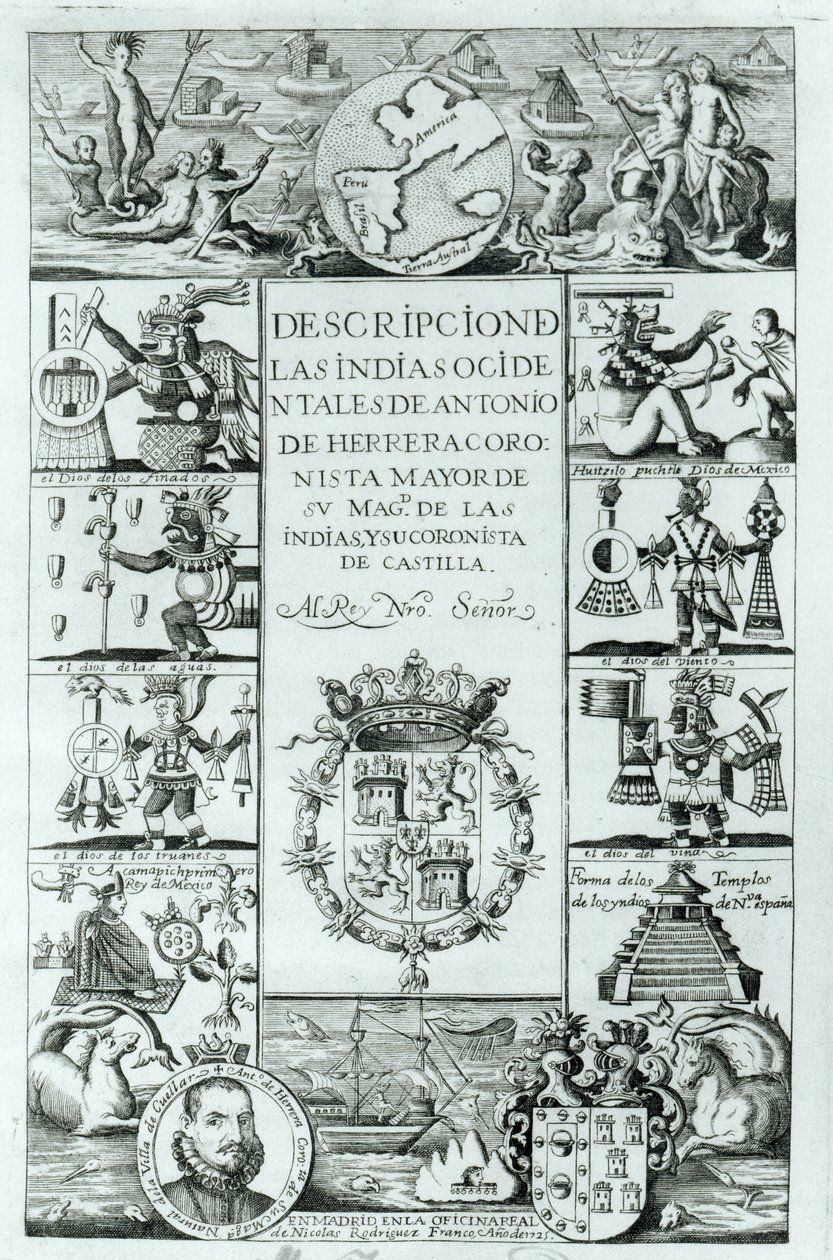 America
Peru
Brasil
Tierra Austral
DESCRIPCIOND
LAS INDIAS OCIDE
NTALES DE ANTONIO
DE HERRERA CORO-
NISTA MAYOR DE
SV MAGD. DE LAS
INDIAS, Y SU CORONISTA
DE CASTILLA.
Al Rey Nro. Señor
el Dios delos finados
el dios de las aguas.
el dios de los truanes
Acamapich primero
Rey de Mexico
Huitzilo puchtli Dios de Mexico
el dios del viento
el dios del vino
Forma de los Templos
de los yndios de Nva. españa
Anto. de Herrera Corota. de Su Magd. Natural de la Villa de Cuellar
EN MADRID EN LA OFICINA REAL
de Nicolas Rodriguez Franco, Año de 1725.